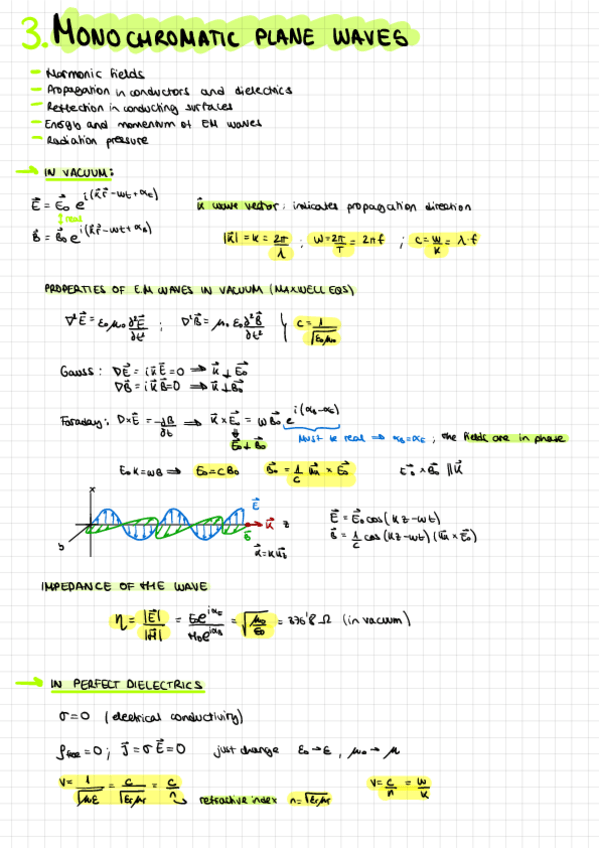 3. MONOCHROMATIC PLANE WAVES
- Harmonic fields
- Propagation in conductors and dielectrics
- Reflection in conducting surfaces
- Energy and momentum of EM waves
- Radiation pressure
→ IN VACUUM:
E⃗ = E⃗₀ e^{i(k⃗r⃗ - wt + α_E)}
↕ real
B⃗ = B⃗₀ e^{i(k⃗r⃗ - wt + α_B)}
k⃗ wave vector: indicates propagation direction
|k⃗| = k = 2π/λ ; w = 2π/T = 2πf ; c = w/k = λ·f
PROPERTIES OF E.M WAVES IN VACUUM (MAXWELL EQS)
∇²E⃗ = ε₀μ₀ ∂²E⃗/∂t² ; ∇²B⃗ = μ₀ε₀ ∂²B⃗/∂t² } c = 1/√(ε₀μ₀)
Gauss: ∇E⃗ = ik⃗E⃗ = 0 → k⃗ ⊥ E⃗₀
∇B⃗ = ik⃗B⃗ = 0 → k⃗ ⊥ B⃗₀
Faraday: ∇×E⃗ = -∂B⃗/∂t → k⃗×E⃗₀ = wB⃗₀ e^{i(α_B - α_E)}
E⃗₀ ⊥ B⃗₀
Must be real → α_B = α_E ; the fields are in phase
E₀k = wB → E₀ = cB₀ B⃗₀ = 1/c u⃗ₙ × E⃗₀ E⃗₀ × B⃗₀ ∥ k⃗
x
E⃗
k⃗ z
B⃗
k⃗ = k u⃗z
E⃗ = E⃗₀ cos(kz - wt)
B⃗ = 1/c cos(kz - wt)(u⃗ₙ × E⃗₀)
IMPEDANCE OF THE WAVE
η = |E⃗|/|H⃗| = E₀e^{iα_E}/H₀e^{iα_B} = √(μ₀/ε₀) = 376'8 Ω (in vacuum)
→ IN PERFECT DIELECTRICS
σ = 0 (electrical conductivity)
ρfree = 0 ; J⃗ = σE⃗ = 0 just change ε₀ → ε , μ₀ → μ
v = 1/√(με) = c/√(εrμr) = c/n v = c/n = w/k
→ refractive index n = √(εrμr)